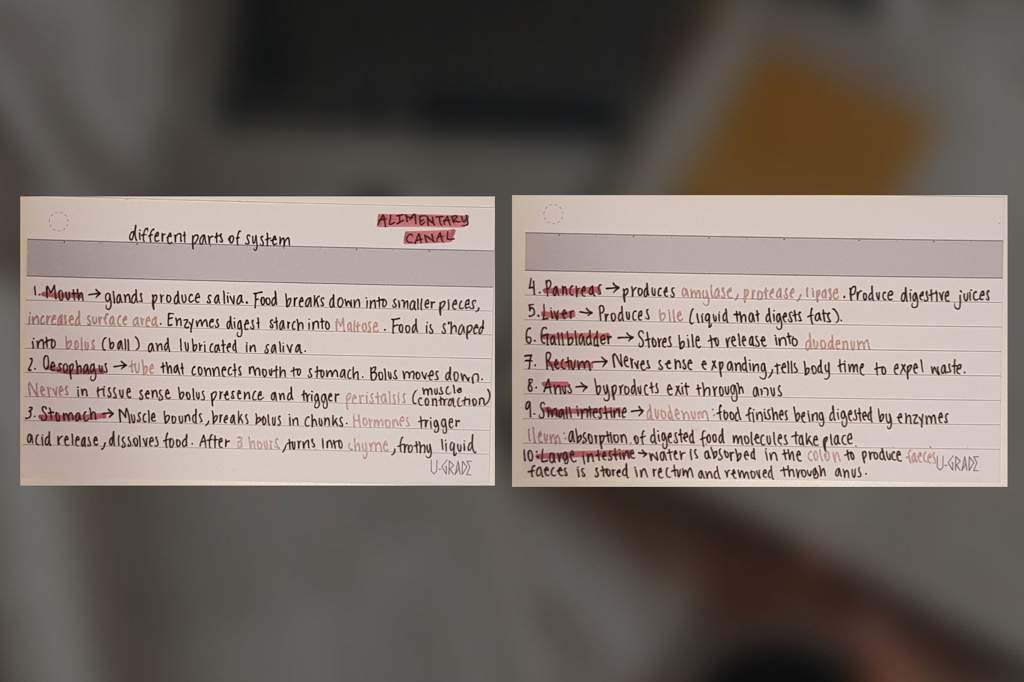 ALIMENTARY
CANAL
different parts of system
1. Mouth → glands produce saliva. Food breaks down into smaller pieces,
increased surface area. Enzymes digest starch into Maltose. Food is shaped
into bolus (ball) and lubricated in saliva.
2. Oesophagus → tube that connects mouth to stomach. Bolus moves down.
Nerves in tissue sense bolus presence and trigger peristalsis (muscle contraction)
3. Stomach → Muscle bounds, breaks bolus in chunks. Hormones trigger
acid release, dissolves food. After 3 hours, turns into chyme, frothy liquid
U-GRADE
4. Pancreas → produces amylase, protease, lipase. Produce digestive juices
5. Liver → Produces bile (liquid that digests fats).
6. Gallbladder → Stores bile to release into duodenum
7. Rectum → Nerves sense expanding, tells body time to expel waste.
8. Anus → byproducts exit through anus
9. Small intestine → duodenum: food finishes being digested by enzymes
Ileum: absorption of digested food molecules take place
10. Large intestine → water is absorbed in the colon to produce faeces
faeces is stored in rectum and removed through anus.
U-GRADE